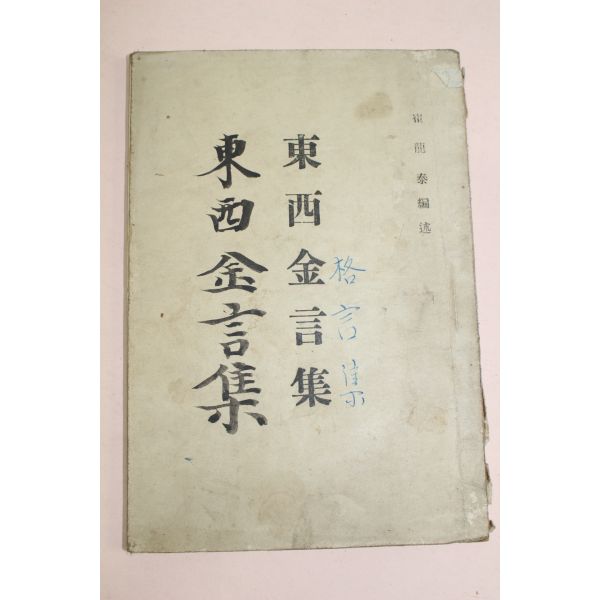 崔龍泰編述
東西金言集
格言集
東西金言集